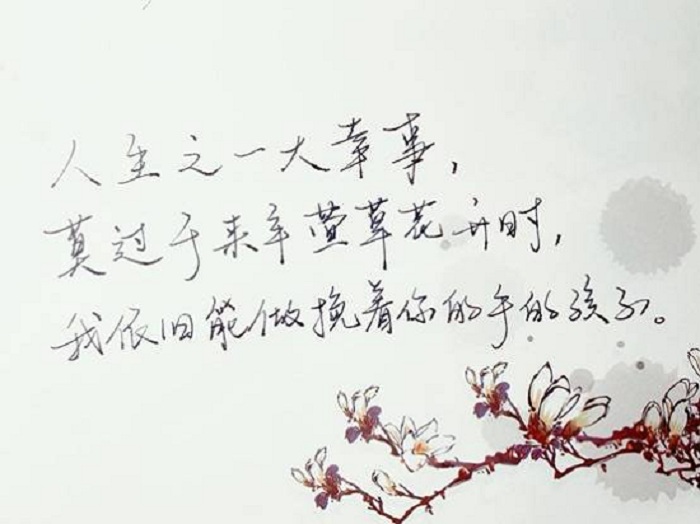 人生之一大幸事，
莫过于来年萱草花开时，
我依旧能做挽着你的手的孩子。